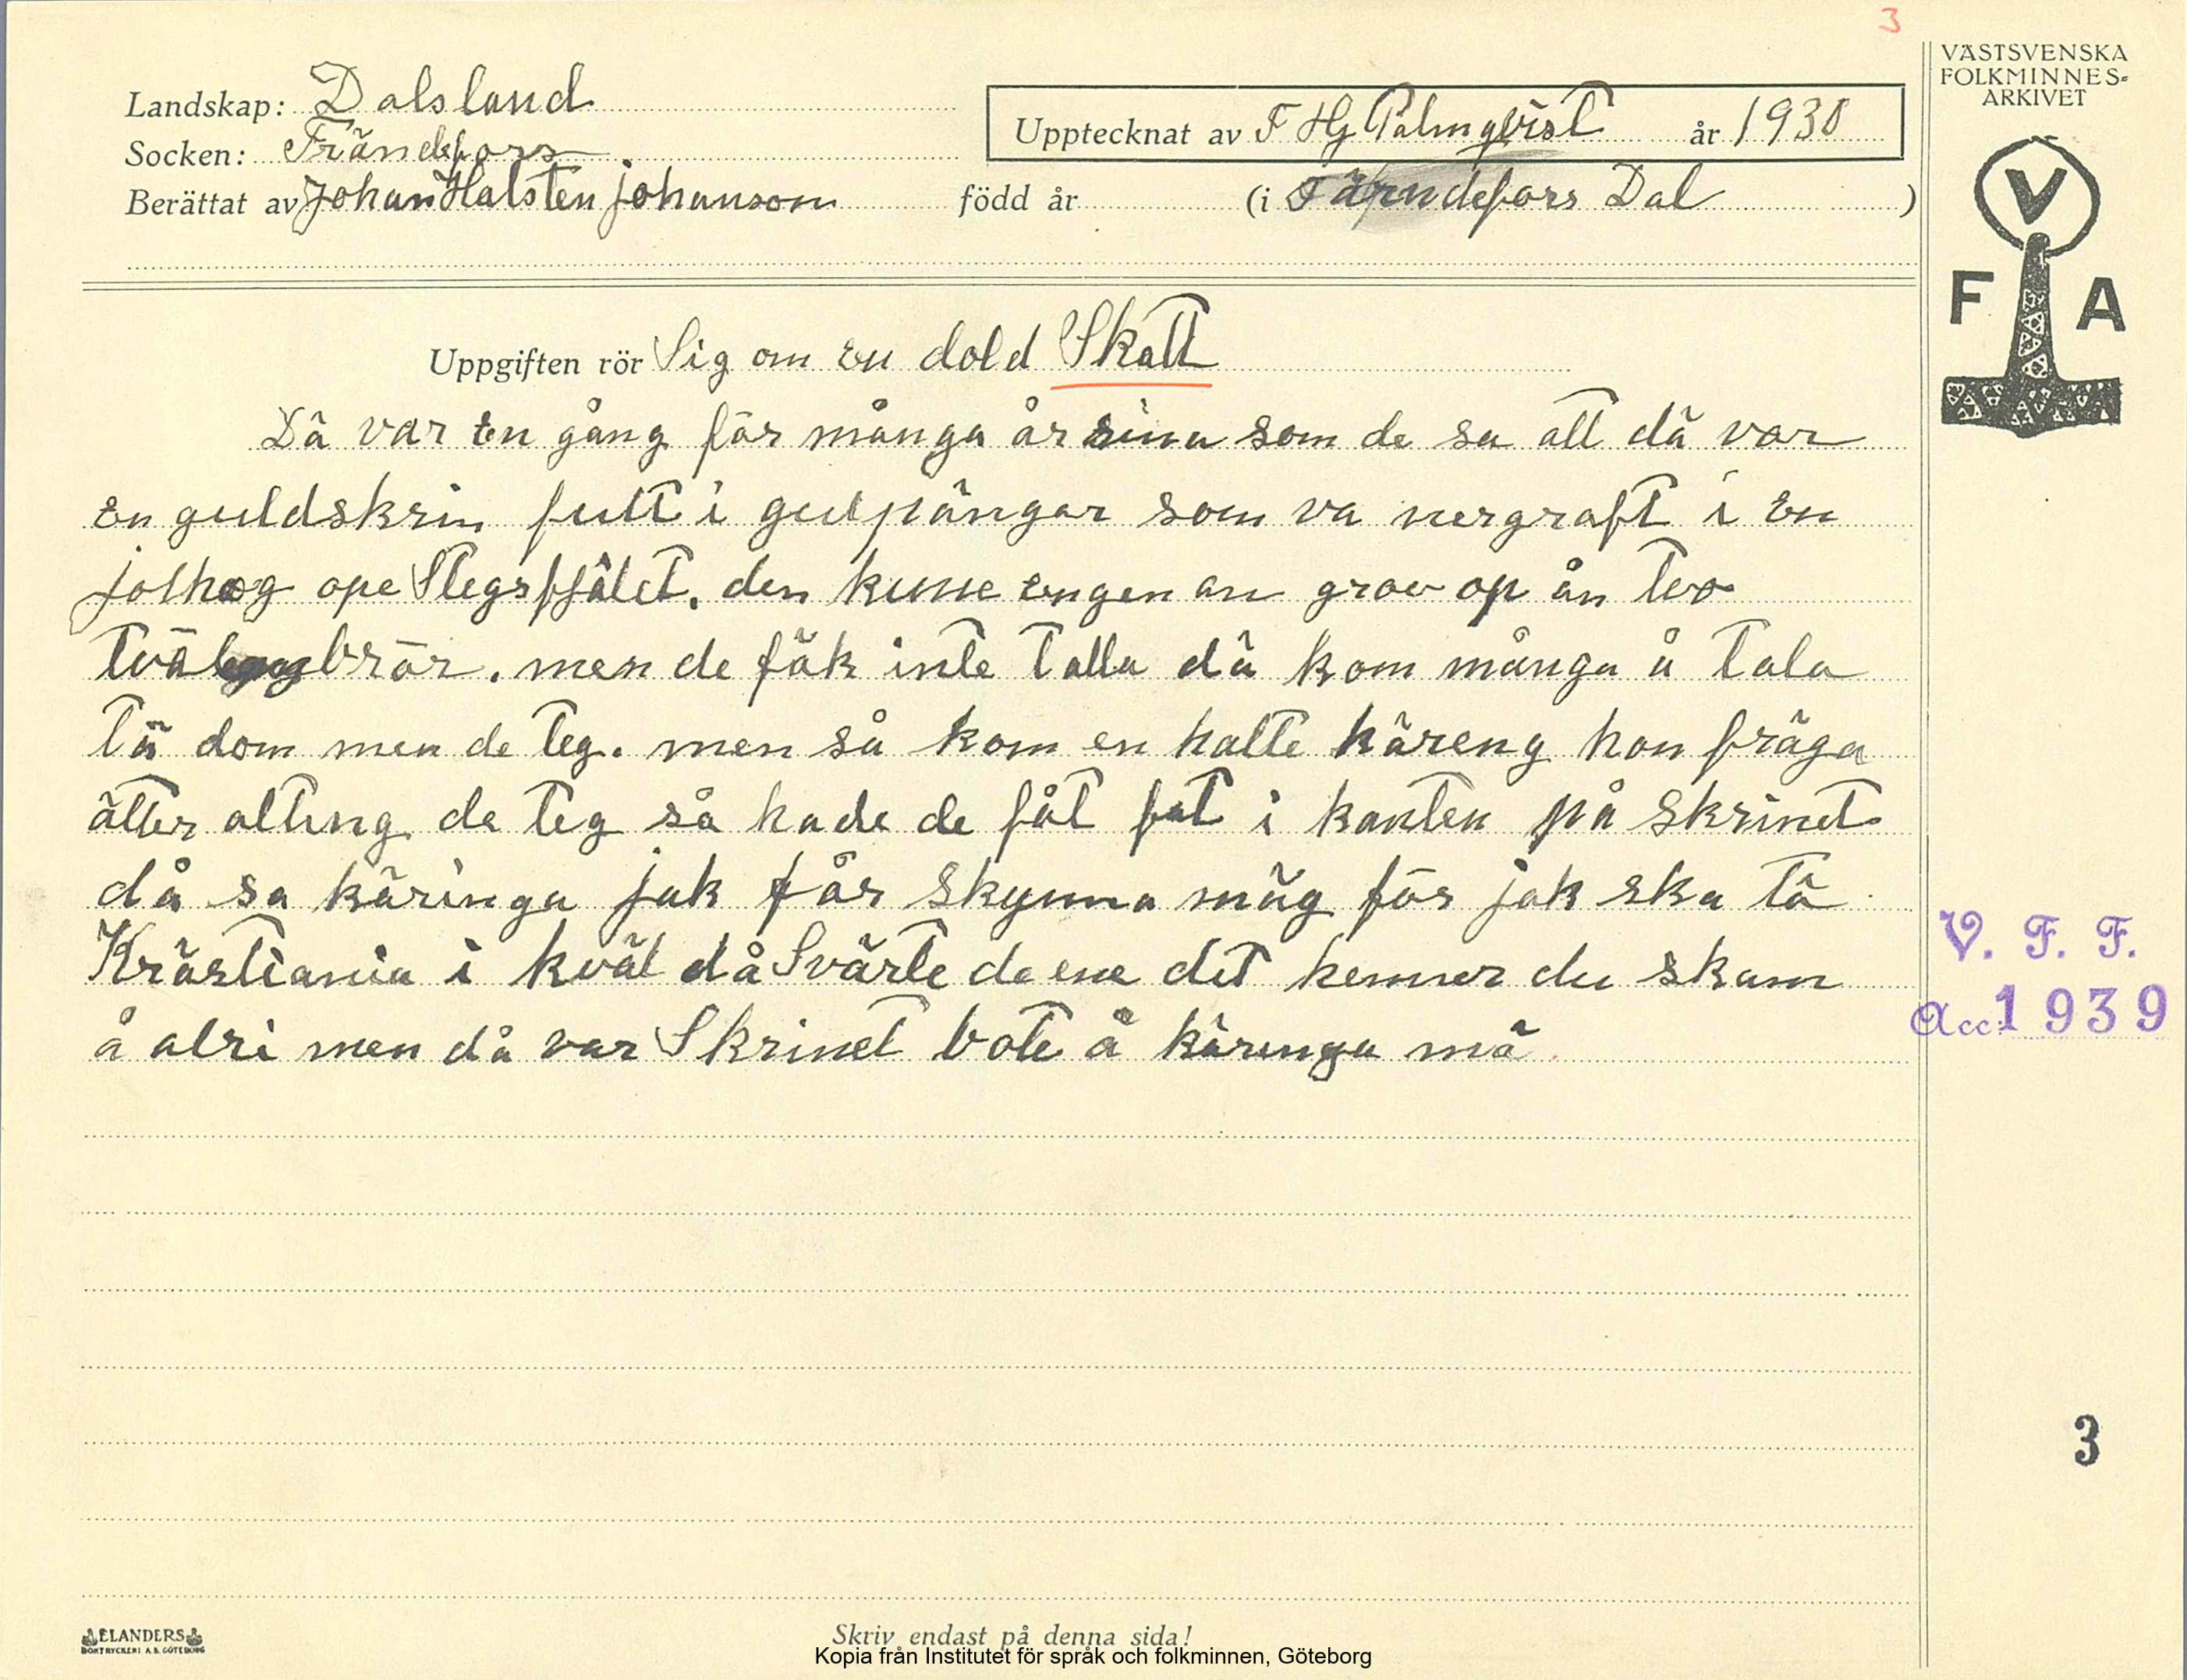 3
VÄSTSVENSKA
FOLKMINNES-
ARKIVET
Landskap: Dalsland
Upptecknat av F Hj Palmqvist år 1930
Socken: Frändefors
Berättat av Johan Halsten Johanson född år (i Färndefors Dal )
V
F A
Uppgiften rör Sig om En dold Skatt
Dä var En gång för många år sina som de sa att dä var
En guldskrin fult i gulpängar som va nergraft i En
jolhög ope Stegsfjälet. den kune engen an grav op än tvo
tväl brör. men de fäk inte talla dä kom många å tala
tä dom men de teg. men så kom en halte käreng hon fräga
ätter alting de teg så hade de fåt fat i kanten på skrinet
då sa käringa jak får skynna mäg för jak ska tä
Krästiania i kväl då Svärte de ene det henner du skam
å alri men då var Skrinet bote å käringa mä
V. F. F.
Acc. 1939
3
ELANDERS
BOKTRYCKERI A.B. GÖTEBORG
Skriv endast på denna sida!
Kopia från Institutet för språk och folkminnen, Göteborg